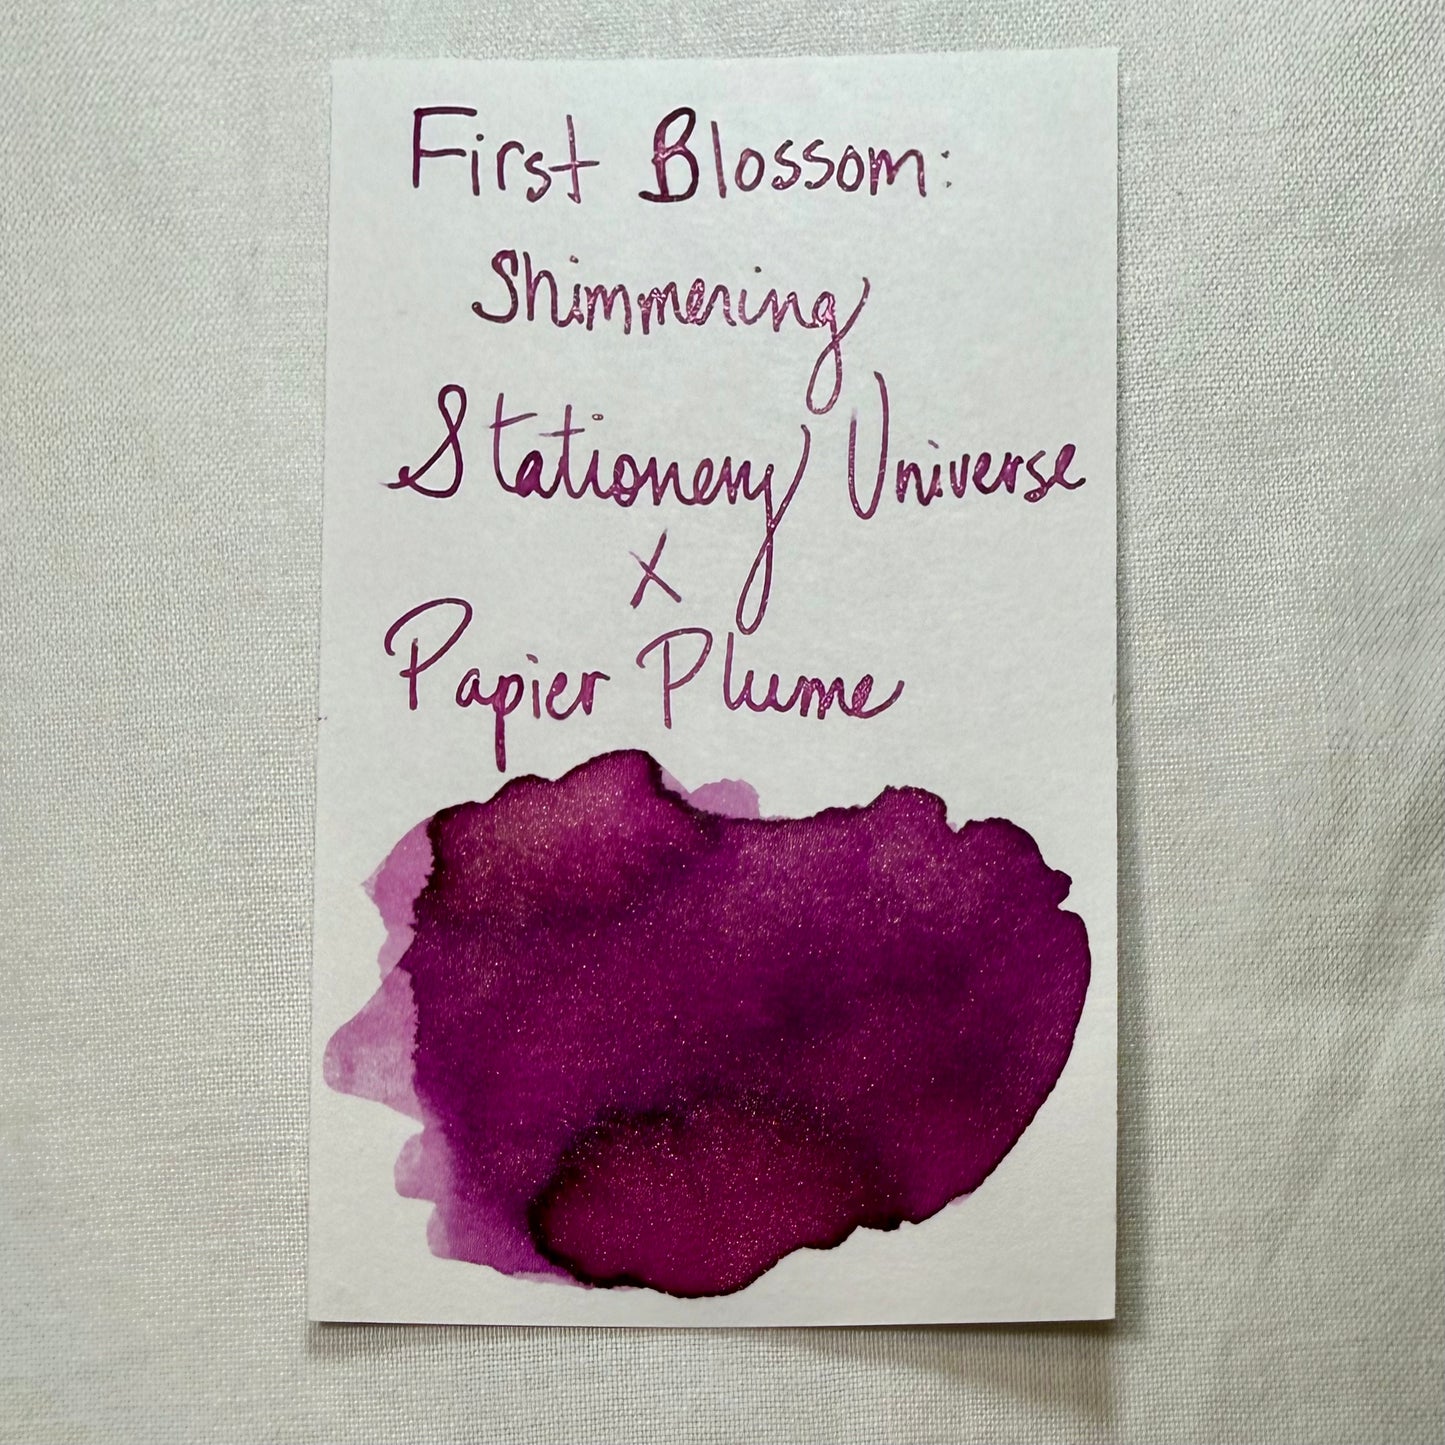 First Blossom:
Shimmering
Stationery Universe
x
Papier Plume